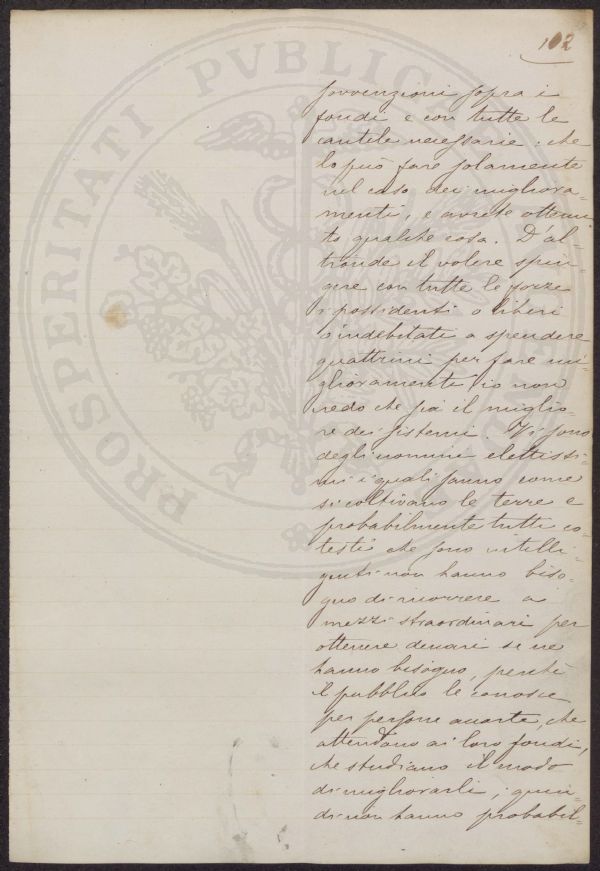 102
sovvenzioni sopra i
fondi e con tutte le
cautele necessarie: che
lo può fare solamente
nel caso dei migliora-
menti, e avrete ottenu-
to qualche cosa. D'al-
tronde il volere spin-
gere con tutte le forze
i possidenti o liberi
o indebitati a spendere
quattrini per fare mi-
glioramenti io non
credo che sia il miglio-
re dei sistemi. Vi sono
degli uomini elettissi-
mi i quali sanno come
si coltivano le terre e
probabilmente tutti co-
testi che sono intelli-
genti non hanno biso-
gno di ricorrere a
mezzi straordinari per
ottenere denari se ne
hanno bisogno, perchè
il pubblico le conosce
per persone accorte, che
attendono ai loro fondi,
che studiano il modo
di migliorarli; quin-
di non hanno probabil-
PROSPERITATI PVBLICAE